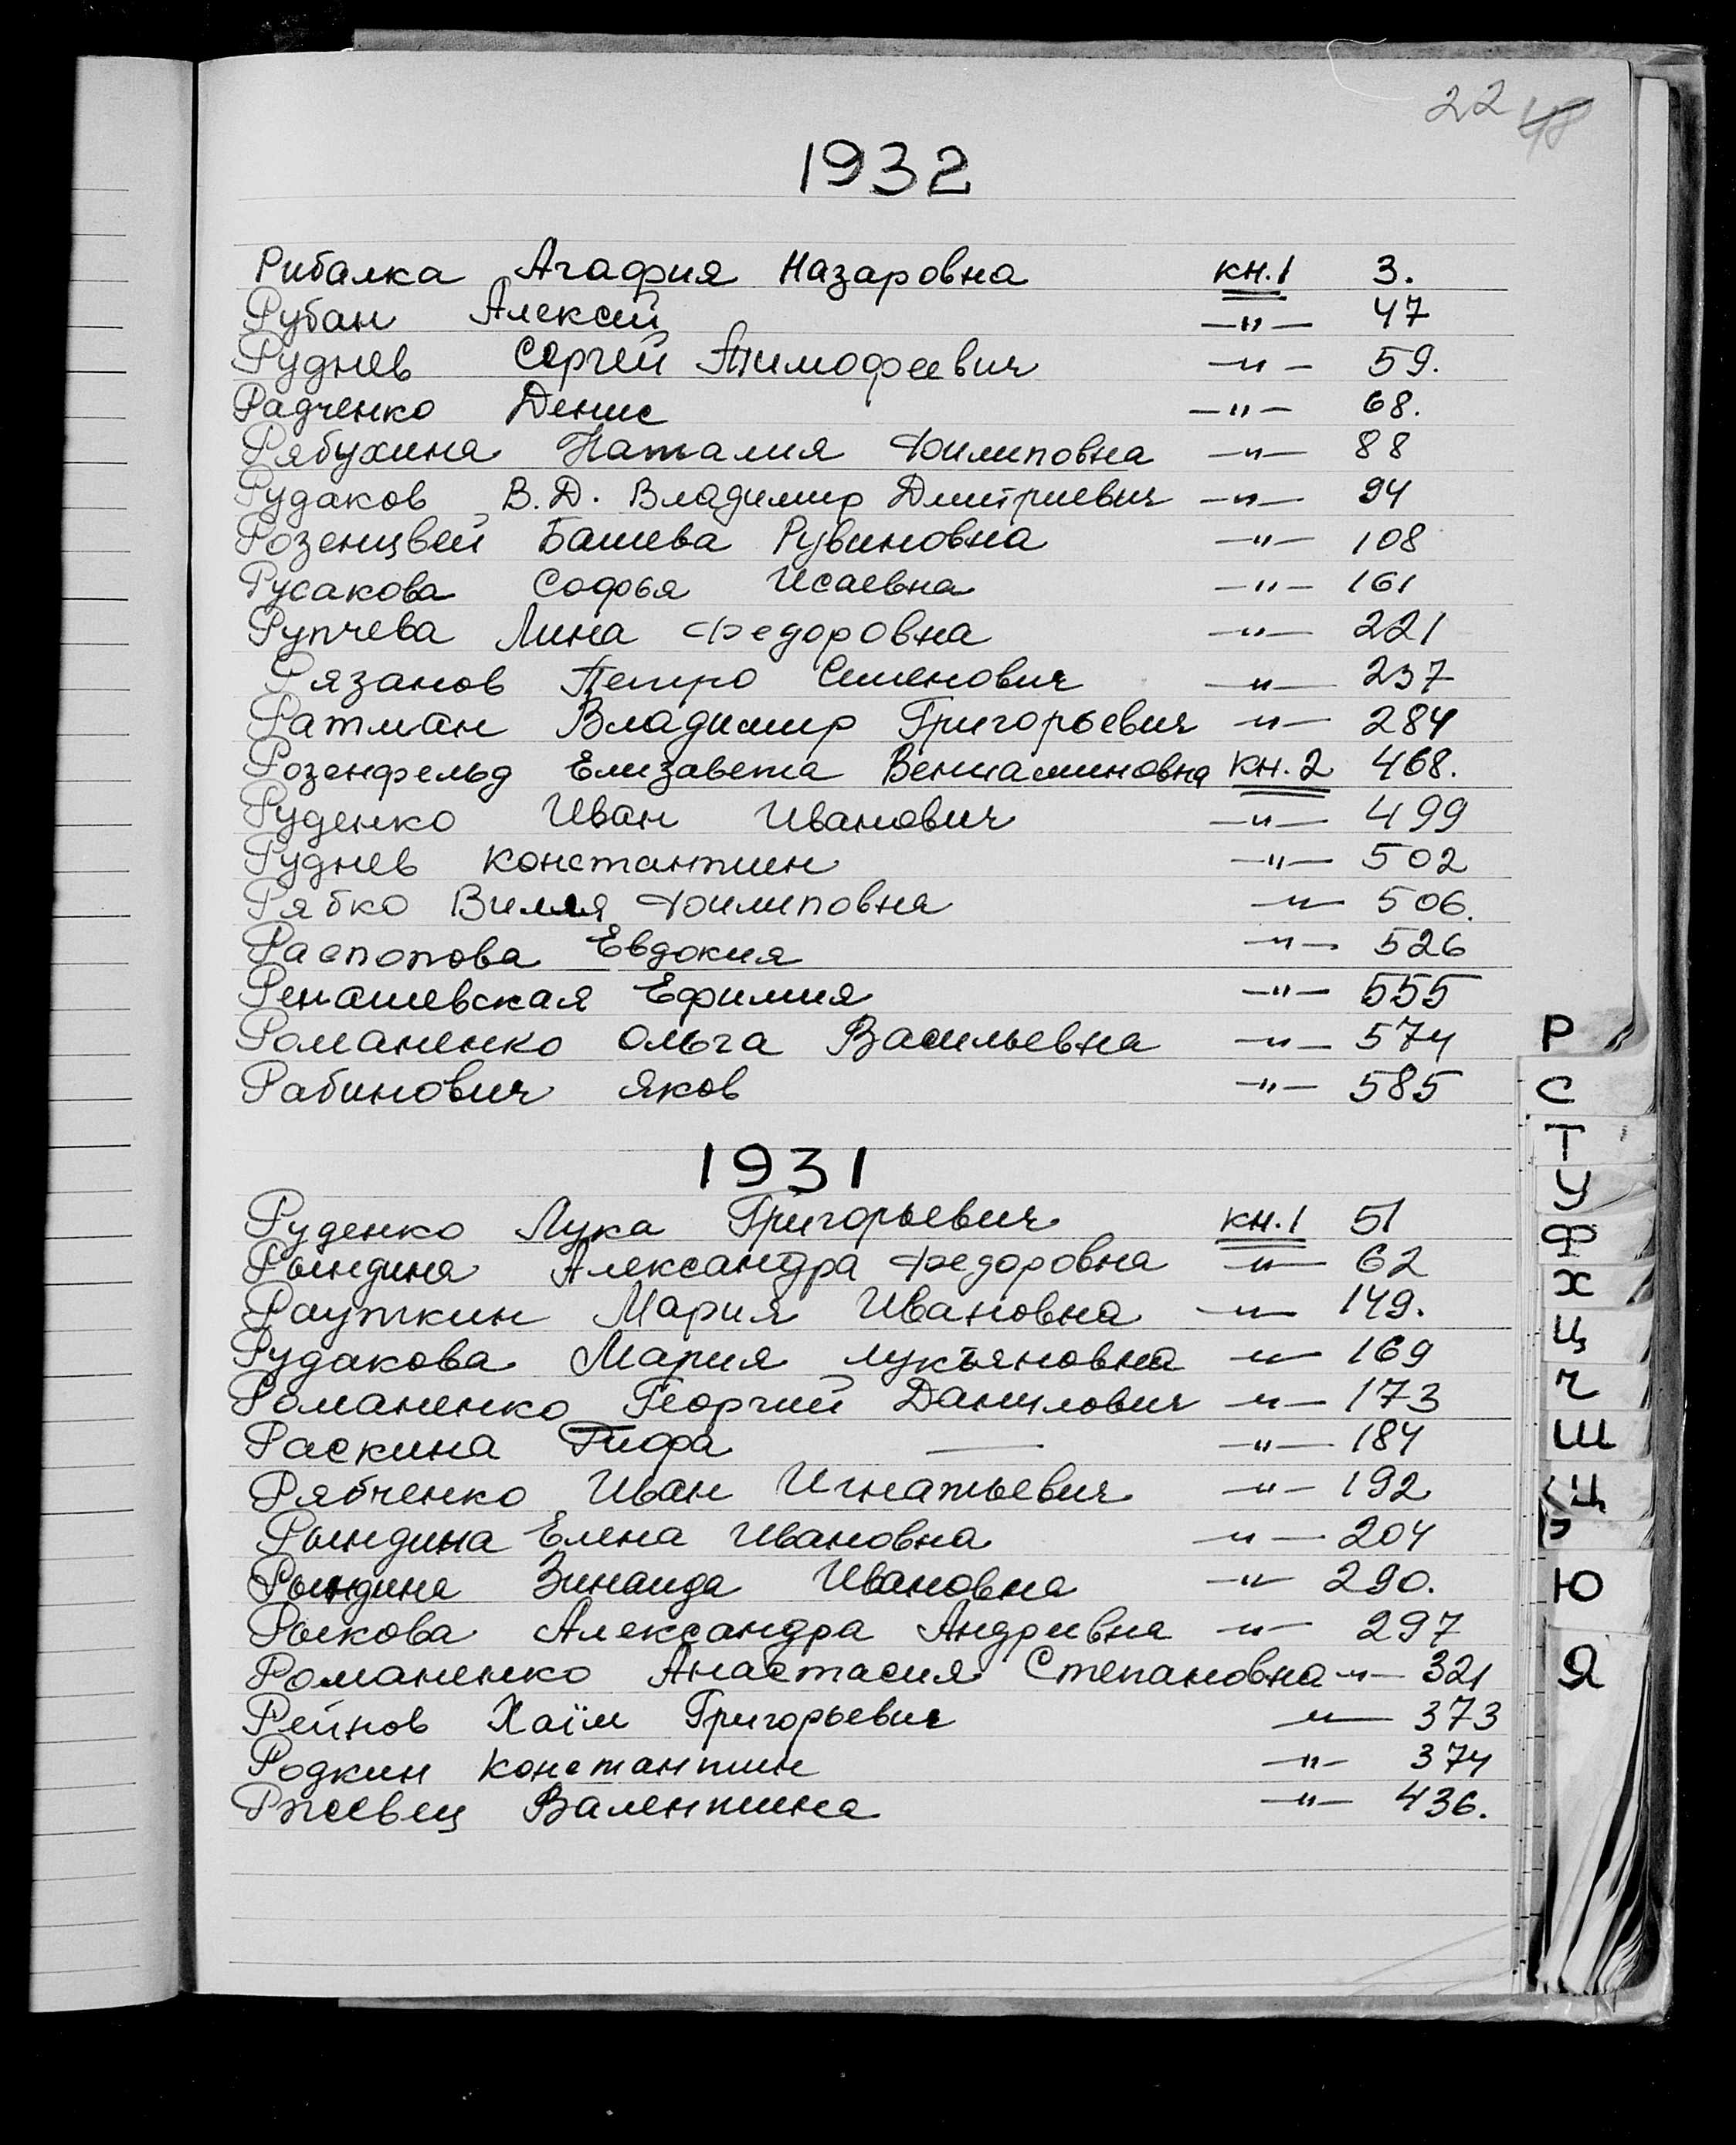 22 48
1932
Рибалка Агафия Назаровна кн.1 3.
Рубан Алексей —"— 47
Руднев Сергей Тимофеевич —"— 59.
Радченко Денис —"— 68.
Рябухина Наталия Филиповна —"— 88
Рудаков В.Д. Владимир Дмитриевич —"— 94
Розенцвей Башева Рувиновна —"— 108
Русакова Софья Исаевна —"— 161
Рупчева Лина Федоровна —"— 221
Рязанов Петро Семенович —"— 237
Ратман Владимир Григорьевич —"— 284
Розенфельд Елизавета Вениаминовна кн.2 468.
Руденко Иван Иванович —"— 499
Руднев Константин —"— 502
Рябко Вилля Филиповна —"— 506.
Распопова Евдокия —"— 526
Ренашевская Ефимия —"— 555
Романенко Ольга Васильевна —"— 574
Рабинович Яков —"— 585
1931
Руденко Лука Григорьевич кн.1 51
Рындина Александра Федоровна —"— 62
Рауткин Мария Ивановна —"— 149.
Рудакова Мария Лукъяновна —"— 169
Романенко Георгий Данилович —"— 173
Раскина Рифа — —"— 184
Рябченко Иван Игнатьевич —"— 192
Рындина Елена Ивановна —"— 204
Рындина Зинаида Ивановна —"— 290.
Рыкова Александра Андреевна —"— 297
Романенко Анастасия Степановна —"— 321
Рейнов Хаїм Григорьевич —"— 373
Родкин Константин —"— 374
Ржевец Валентина —"— 436.
Р
С
Т
У
Ф
Х
Ц
Ч
Ш
Щ
Э
Ю
Я